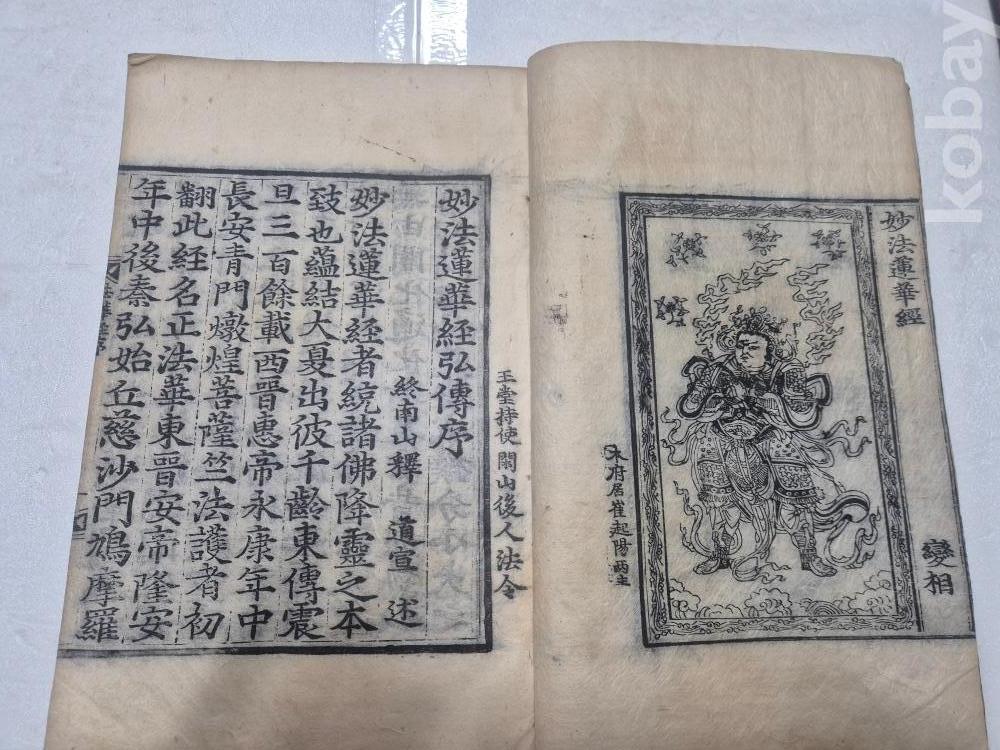 妙法蓮華經
變相
本府居崔起陽兩主
玉堂持使關山後人法令
妙法蓮華經弘傳序
終南山釋 道宣 述
妙法蓮華經者統諸佛降靈之本
致也蘊結大夏出彼千齡東傳震
旦三百餘載西晉惠帝永康年中
長安青門燉煌菩薩竺法護者初
翻此經名正法華東晉安帝隆安
年中後秦弘始丘慈沙門鳩摩羅
kobay